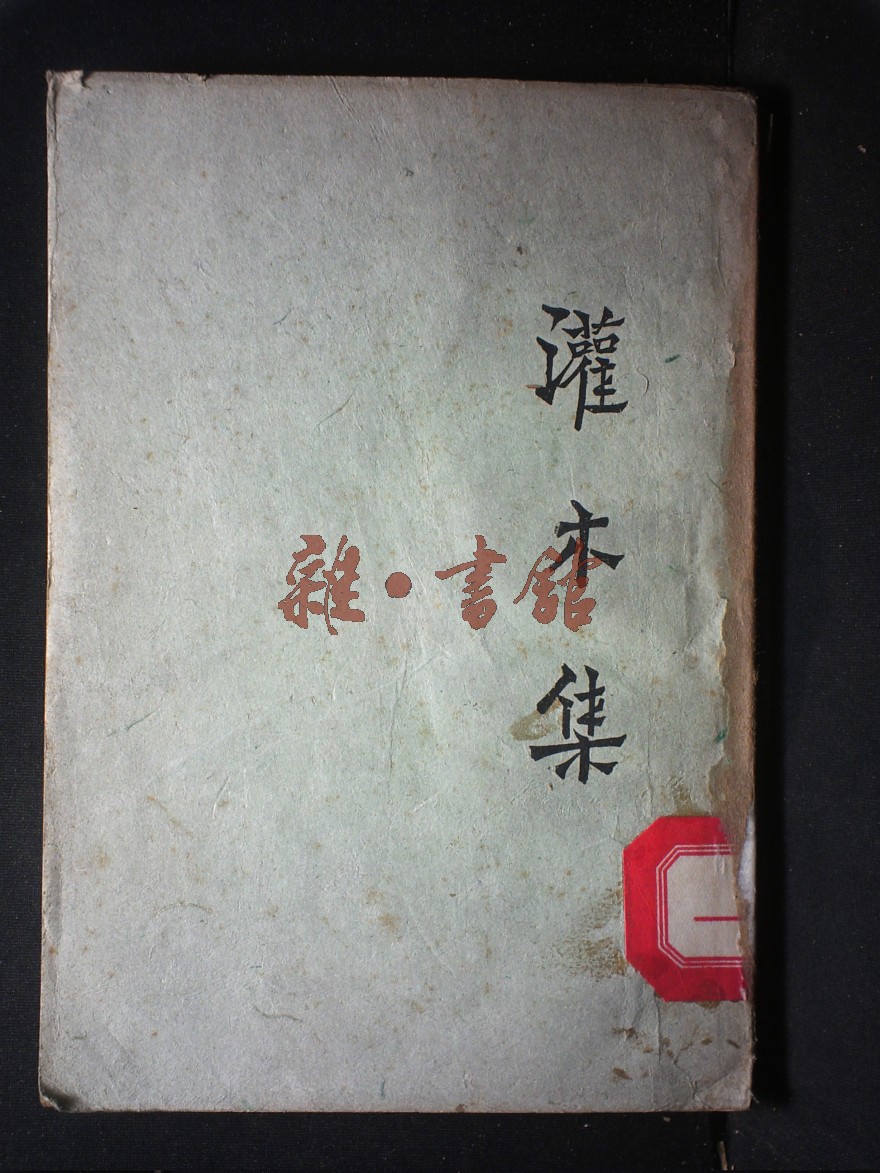 灌木集
雜·書館